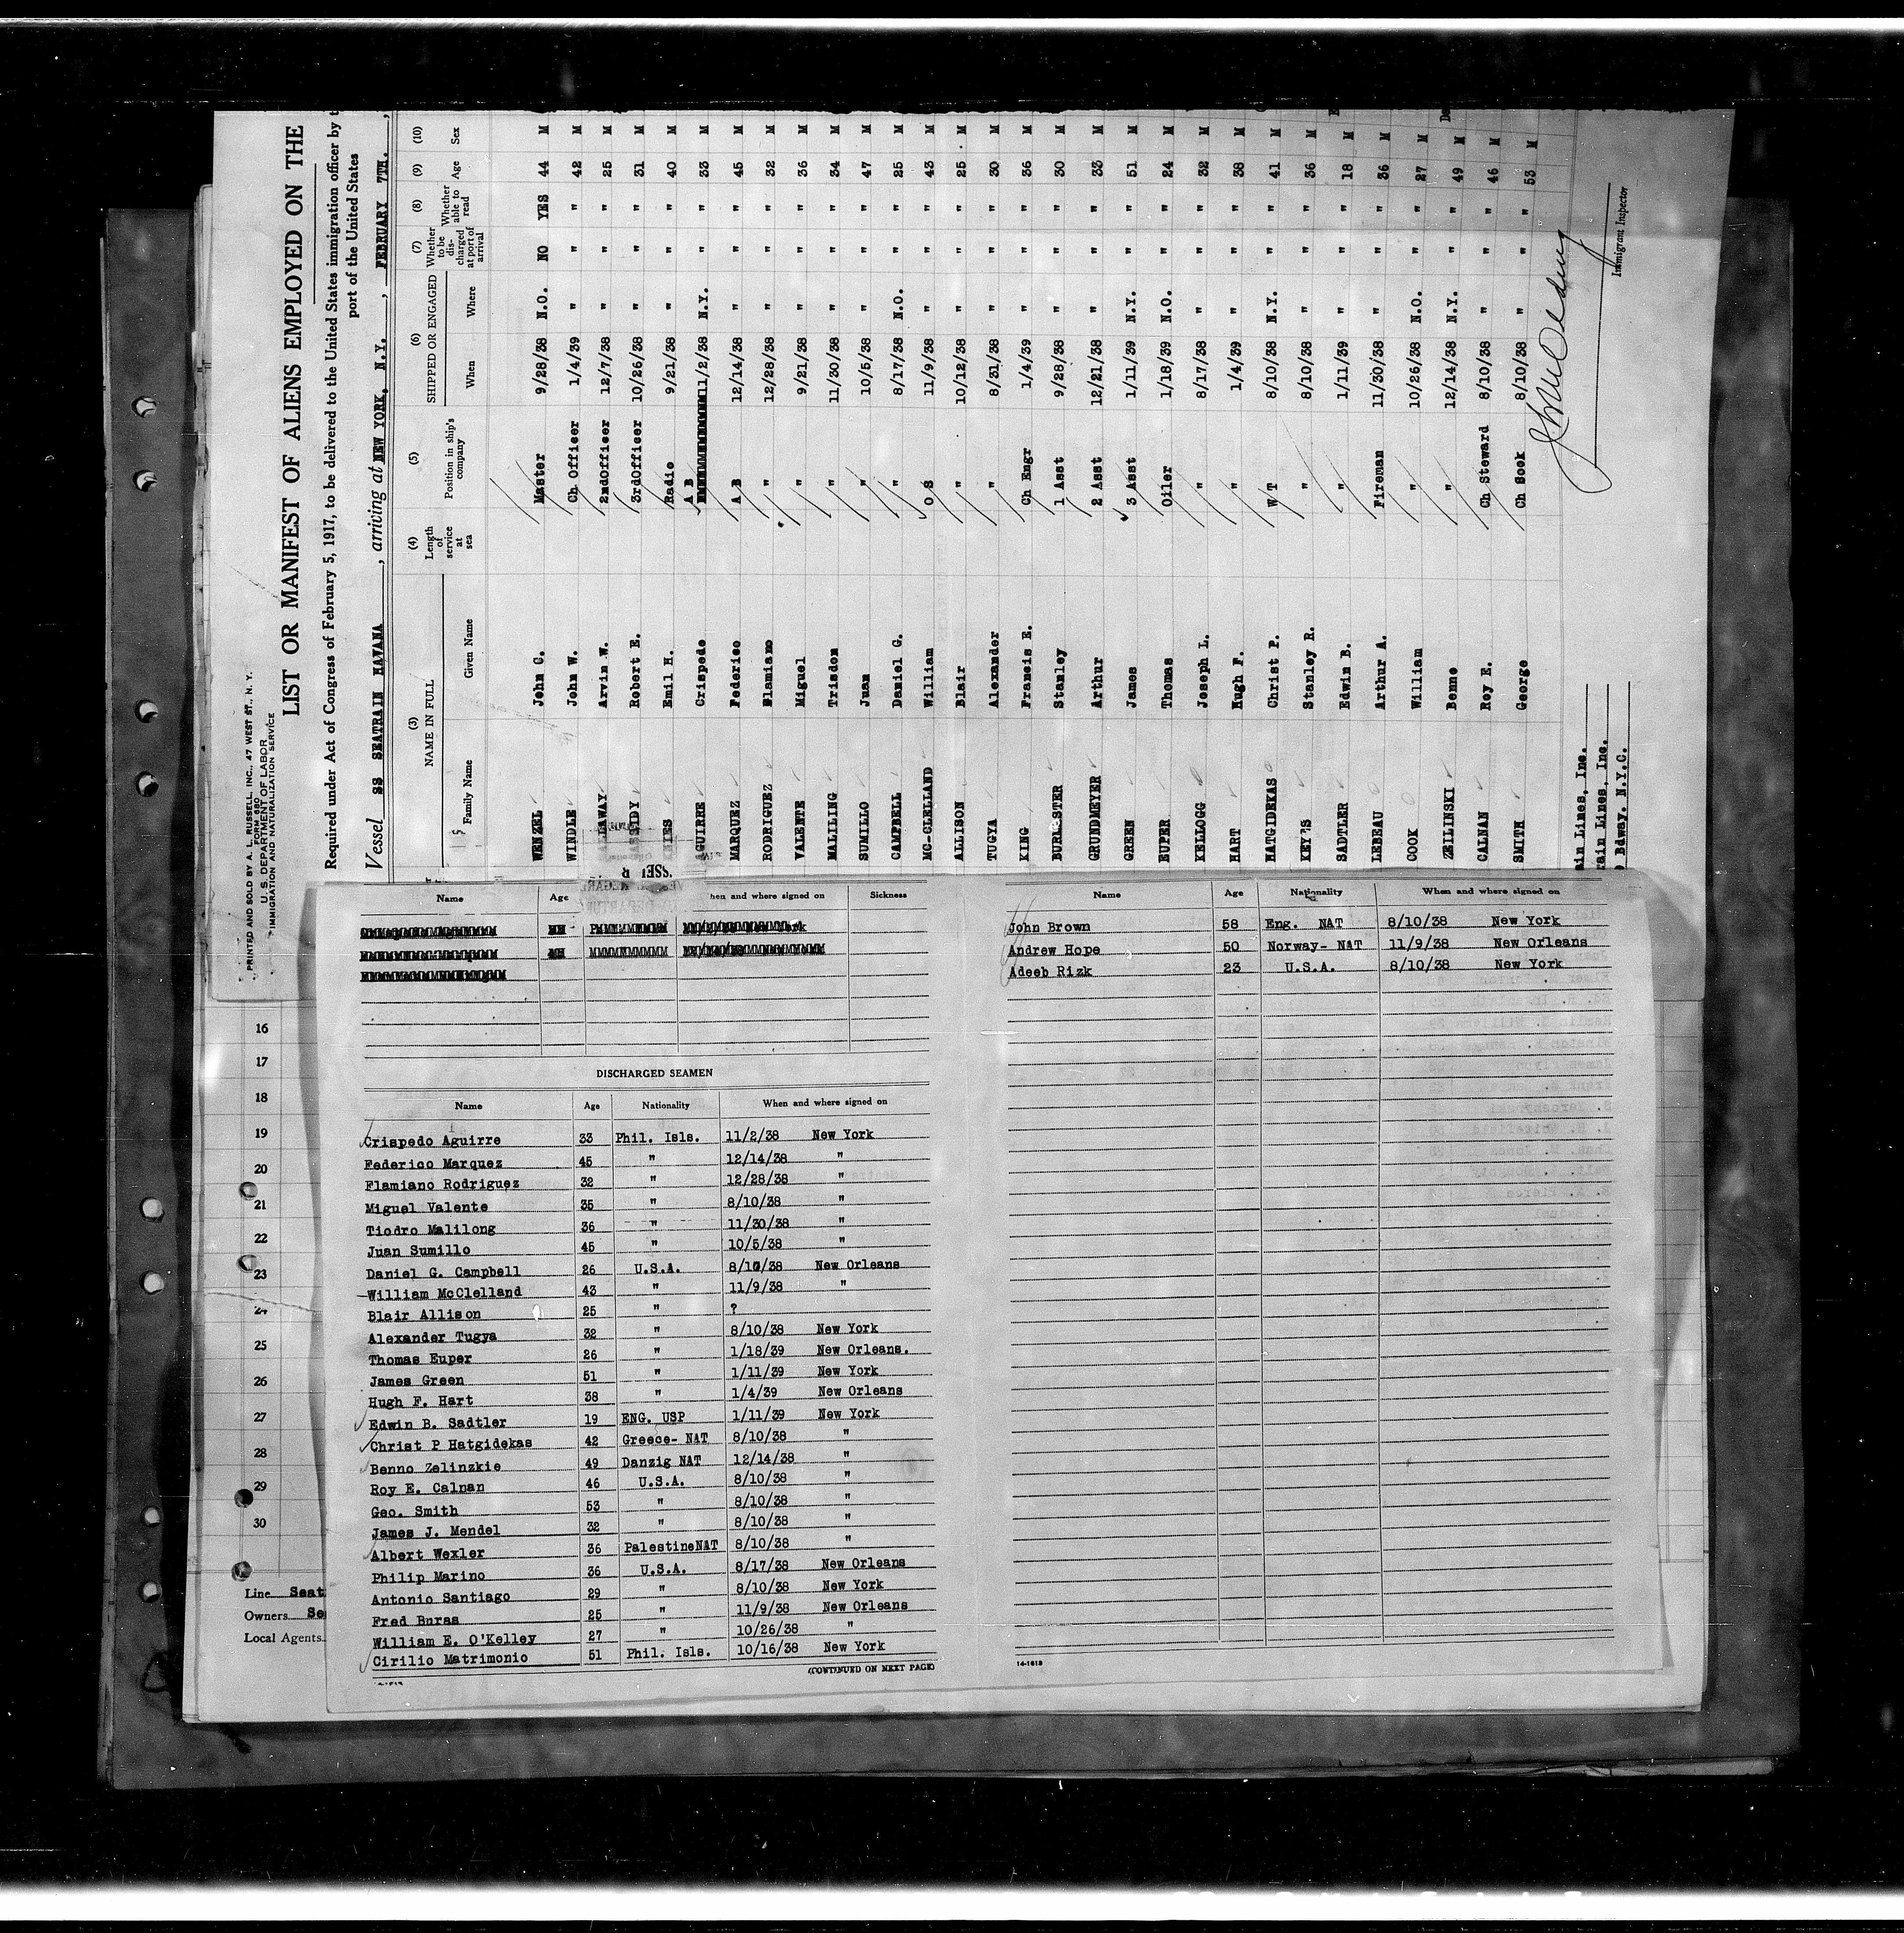 PRINTED AND SOLD BY A. L. RUSSELL, INC., 47 WEST ST., N. Y.
FORM 680
U. S. DEPARTMENT OF LABOR
IMMIGRATION AND NATURALIZATION SERVICE
LIST OR MANIFEST OF ALIENS EMPLOYED ON THE
Required under Act of Congress of February 5, 1917, to be delivered to the United States immigration officer by
port of the United States
Vessel SS SEATRAIN HAVANA, arriving at NEW YORK, N.Y., FEBRUARY 7TH.,
(3) (4) (5) (6) (7) (8) (9) (10)
NAME IN FULL Length of service at sea Position in ship's company SHIPPED OR ENGAGED Whether to be discharged at port of arrival Whether able to read Age Sex
Family Name Given Name When Where
WENZEL John C. Master 9/28/38 N.O. NO YES 44 M
WINDLE John W. Ch Officer 1/4/39 " " " 42 M
LAWAY Arvin W. 2ndOfficer 12/7/38 " " " 25 M
SIDY Robert E. 3rdOfficer 10/26/38 " " " 31 M
IES Emil H. Radio 9/21/38 " " " 40 M
AGUIRRE Crispedo A B 11/2/38 N.Y. " " 33 M
MARQUEZ Federico A B 12/14/38 " " " 45 M
RODRIGUEZ Flamiano " 12/28/38 " " " 32 M
VALENTE Miguel " 9/21/38 " " " 36 M
MALILING Trisidon " 11/30/38 " " " 34 M
SUMILLO Juan " 10/5/38 " " " 47 M
CAMPBELL Daniel G. " 8/17/38 N.O. " " 25 M
MC-CLELLAND William O S 11/9/38 " " " 43 M
ALLISON Blair " 10/12/38 " " " 25 M
TUGYA Alexander " 8/31/38 " " " 30 M
KING Francis E. Ch Engr 1/4/39 " " " 36 M
Stanley 1 Asst 9/28/38 " " " 30 M
GRUNDMEYER Arthur 2 Asst 12/21/38 " " " 33 M
GREEN James 3 Asst 1/11/39 N.Y. " " 51 M
EUPER Thomas Oiler 1/18/39 N.O. " " 24 M
KELLOGG Joseph L. " 8/17/38 " " " 32 M
HART Hugh F. " 1/4/39 " " " 38 M
HATGIDEKAS Christ P. W T 8/10/38 N.Y. " " 41 M
KEYES Stanley R. " 8/10/38 " " " 36 M
SADTLER Edwin B. " 1/11/39 " " " 18 M
LEBEAU Arthur A. Fireman 11/30/38 " " " 36 M
COOK William " 10/26/38 N.O. " " 27 M
ZEILINSKI Benno " 12/14/38 N.Y. " " 49 M
CALNAN Roy E. Ch Steward 8/10/38 " " " 46 M
SMITH George Ch Cook 8/10/38 " " " 53 M
Immigrant Inspector
ain Lines, Inc.
rain Lines, Inc.
Bdway. N.Y.C.
Name Age hen and where signed on Sickness
DISCHARGED SEAMEN
Name Age Nationality When and where signed on
Crispedo Aguirre 33 Phil. Isls. 11/2/38 New York
Federico Marquez 45 " 12/14/38 "
Flamiano Rodriguez 32 " 12/28/38 "
Miguel Valente 35 " 8/10/38 "
Tiodro Malilong 36 " 11/30/38 "
Juan Sumillo 45 " 10/5/38 "
Daniel G. Campbell 26 U.S.A. 8/10/38 New Orleans
William McClelland 43 " 11/9/38 "
Blair Allison 25 " ?
Alexander Tugya 32 " 8/10/38 New York
Thomas Euper 26 " 1/18/39 New Orleans.
James Green 51 " 1/11/39 New York
Hugh F. Hart 38 " 1/4/39 New Orleans
Edwin B. Sadtler 19 ENG. USP 1/11/39 New York
Christ P Hatgidekas 42 Greece- NAT 8/10/38 "
Benno Zelinzkie 49 Danzig NAT 12/14/38 "
Roy E. Calnan 46 U.S.A. 8/10/38 "
Geo. Smith 53 " 8/10/38 "
James J. Mendel 32 " 8/10/38 "
Albert Wexler 36 PalestineNAT 8/10/38 "
Philip Marino 36 U.S.A. 8/17/38 New Orleans
Antonio Santiago 29 " 8/10/38 New York
Fred Buras 25 " 11/9/38 New Orleans
William E. O'Kelley 27 " 10/26/38 "
Cirilio Matrimonio 51 Phil. Isls. 10/16/38 New York
(CONTINUED ON NEXT PAGE)
Name Age Nationality When and where signed on
John Brown 58 Eng. NAT 8/10/38 New York
Andrew Hope 50 Norway- NAT 11/9/38 New Orleans
Adeeb Rizk 23 U.S.A. 8/10/38 New York
14-1613
16
17
18
19
20
21
22
23
24
25
26
27
28
29
30
Line Seat
Owners Se
Local Agents